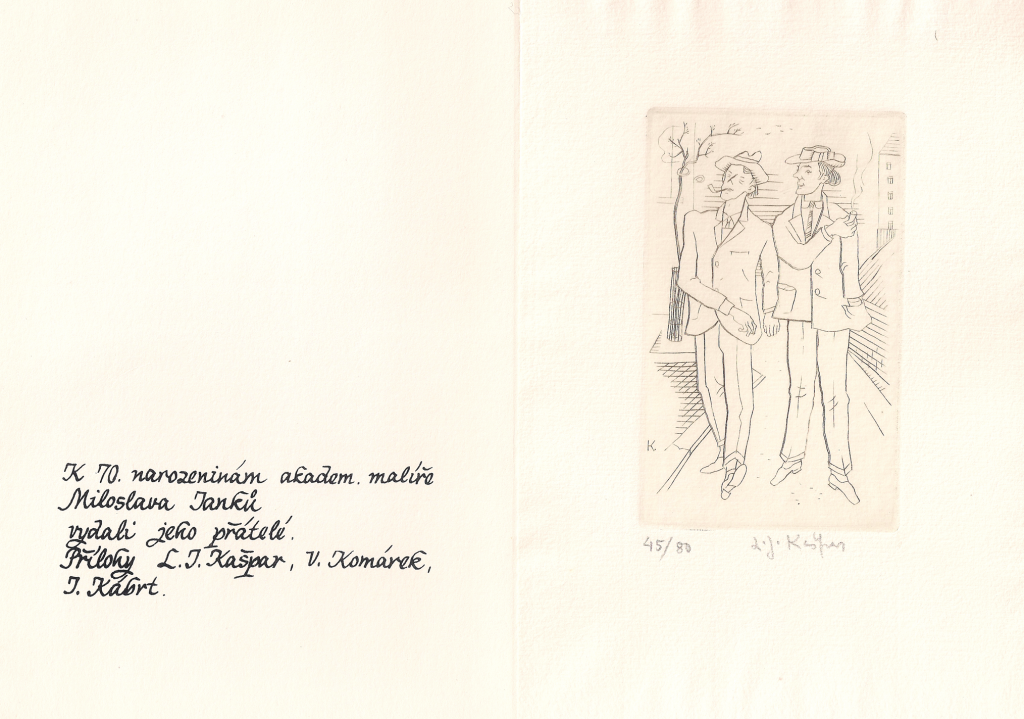 K 70. narozeninám akadem. malíře
Miloslava Janků
vydali jeho přátelé.
Přílohy L.J.Kašpar, V. Komárek,
J. Kábrt.
K
45/80 L.J. Kašpar